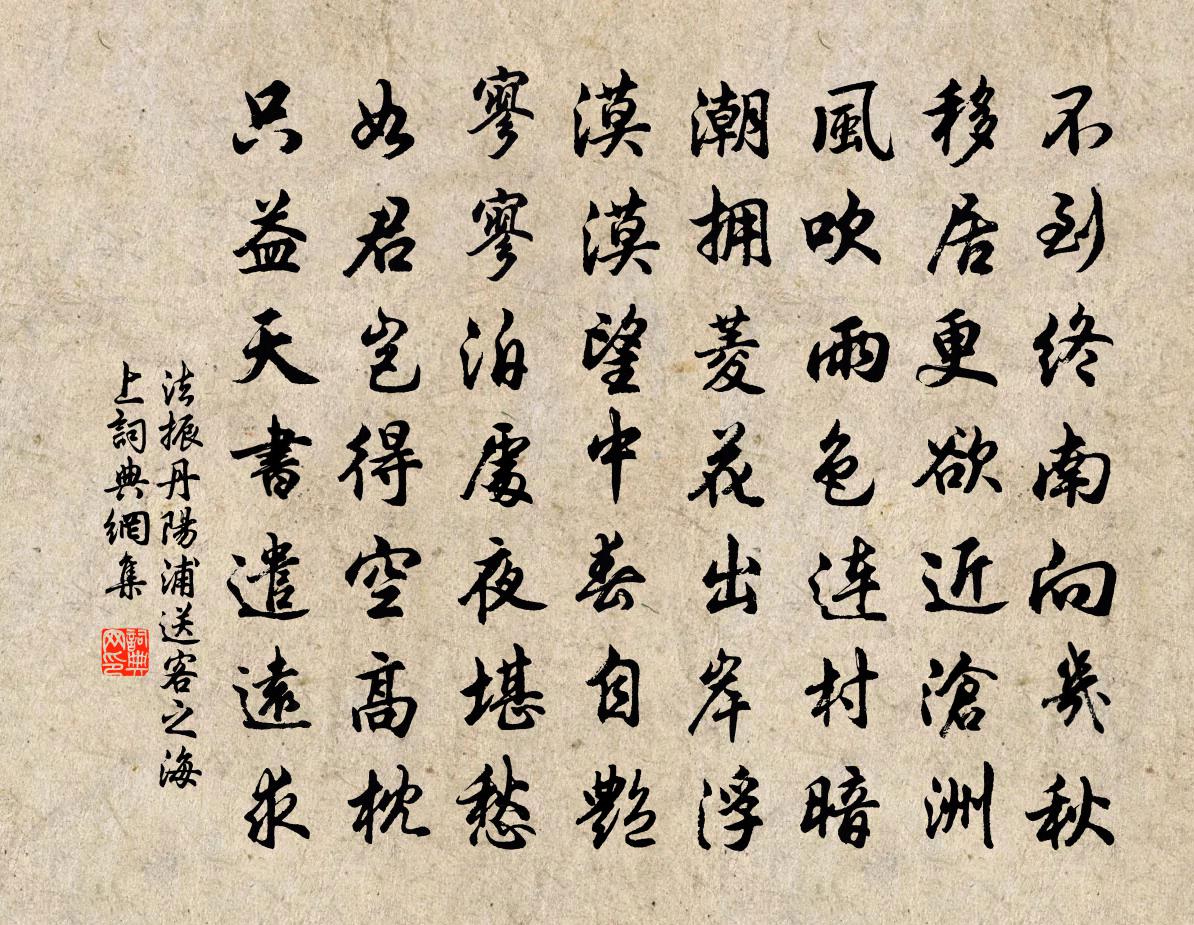 不到终南向幾秋
移居更欲近滄洲
風吹雨色連村暗
潮拥菱花出岸浮
漠漠望中春自艷
寥寥泊處夜堪愁
如君豈得空高枕
只益天書遣遠求
法振丹陽浦送客之海
上詞典網集
詞典网印